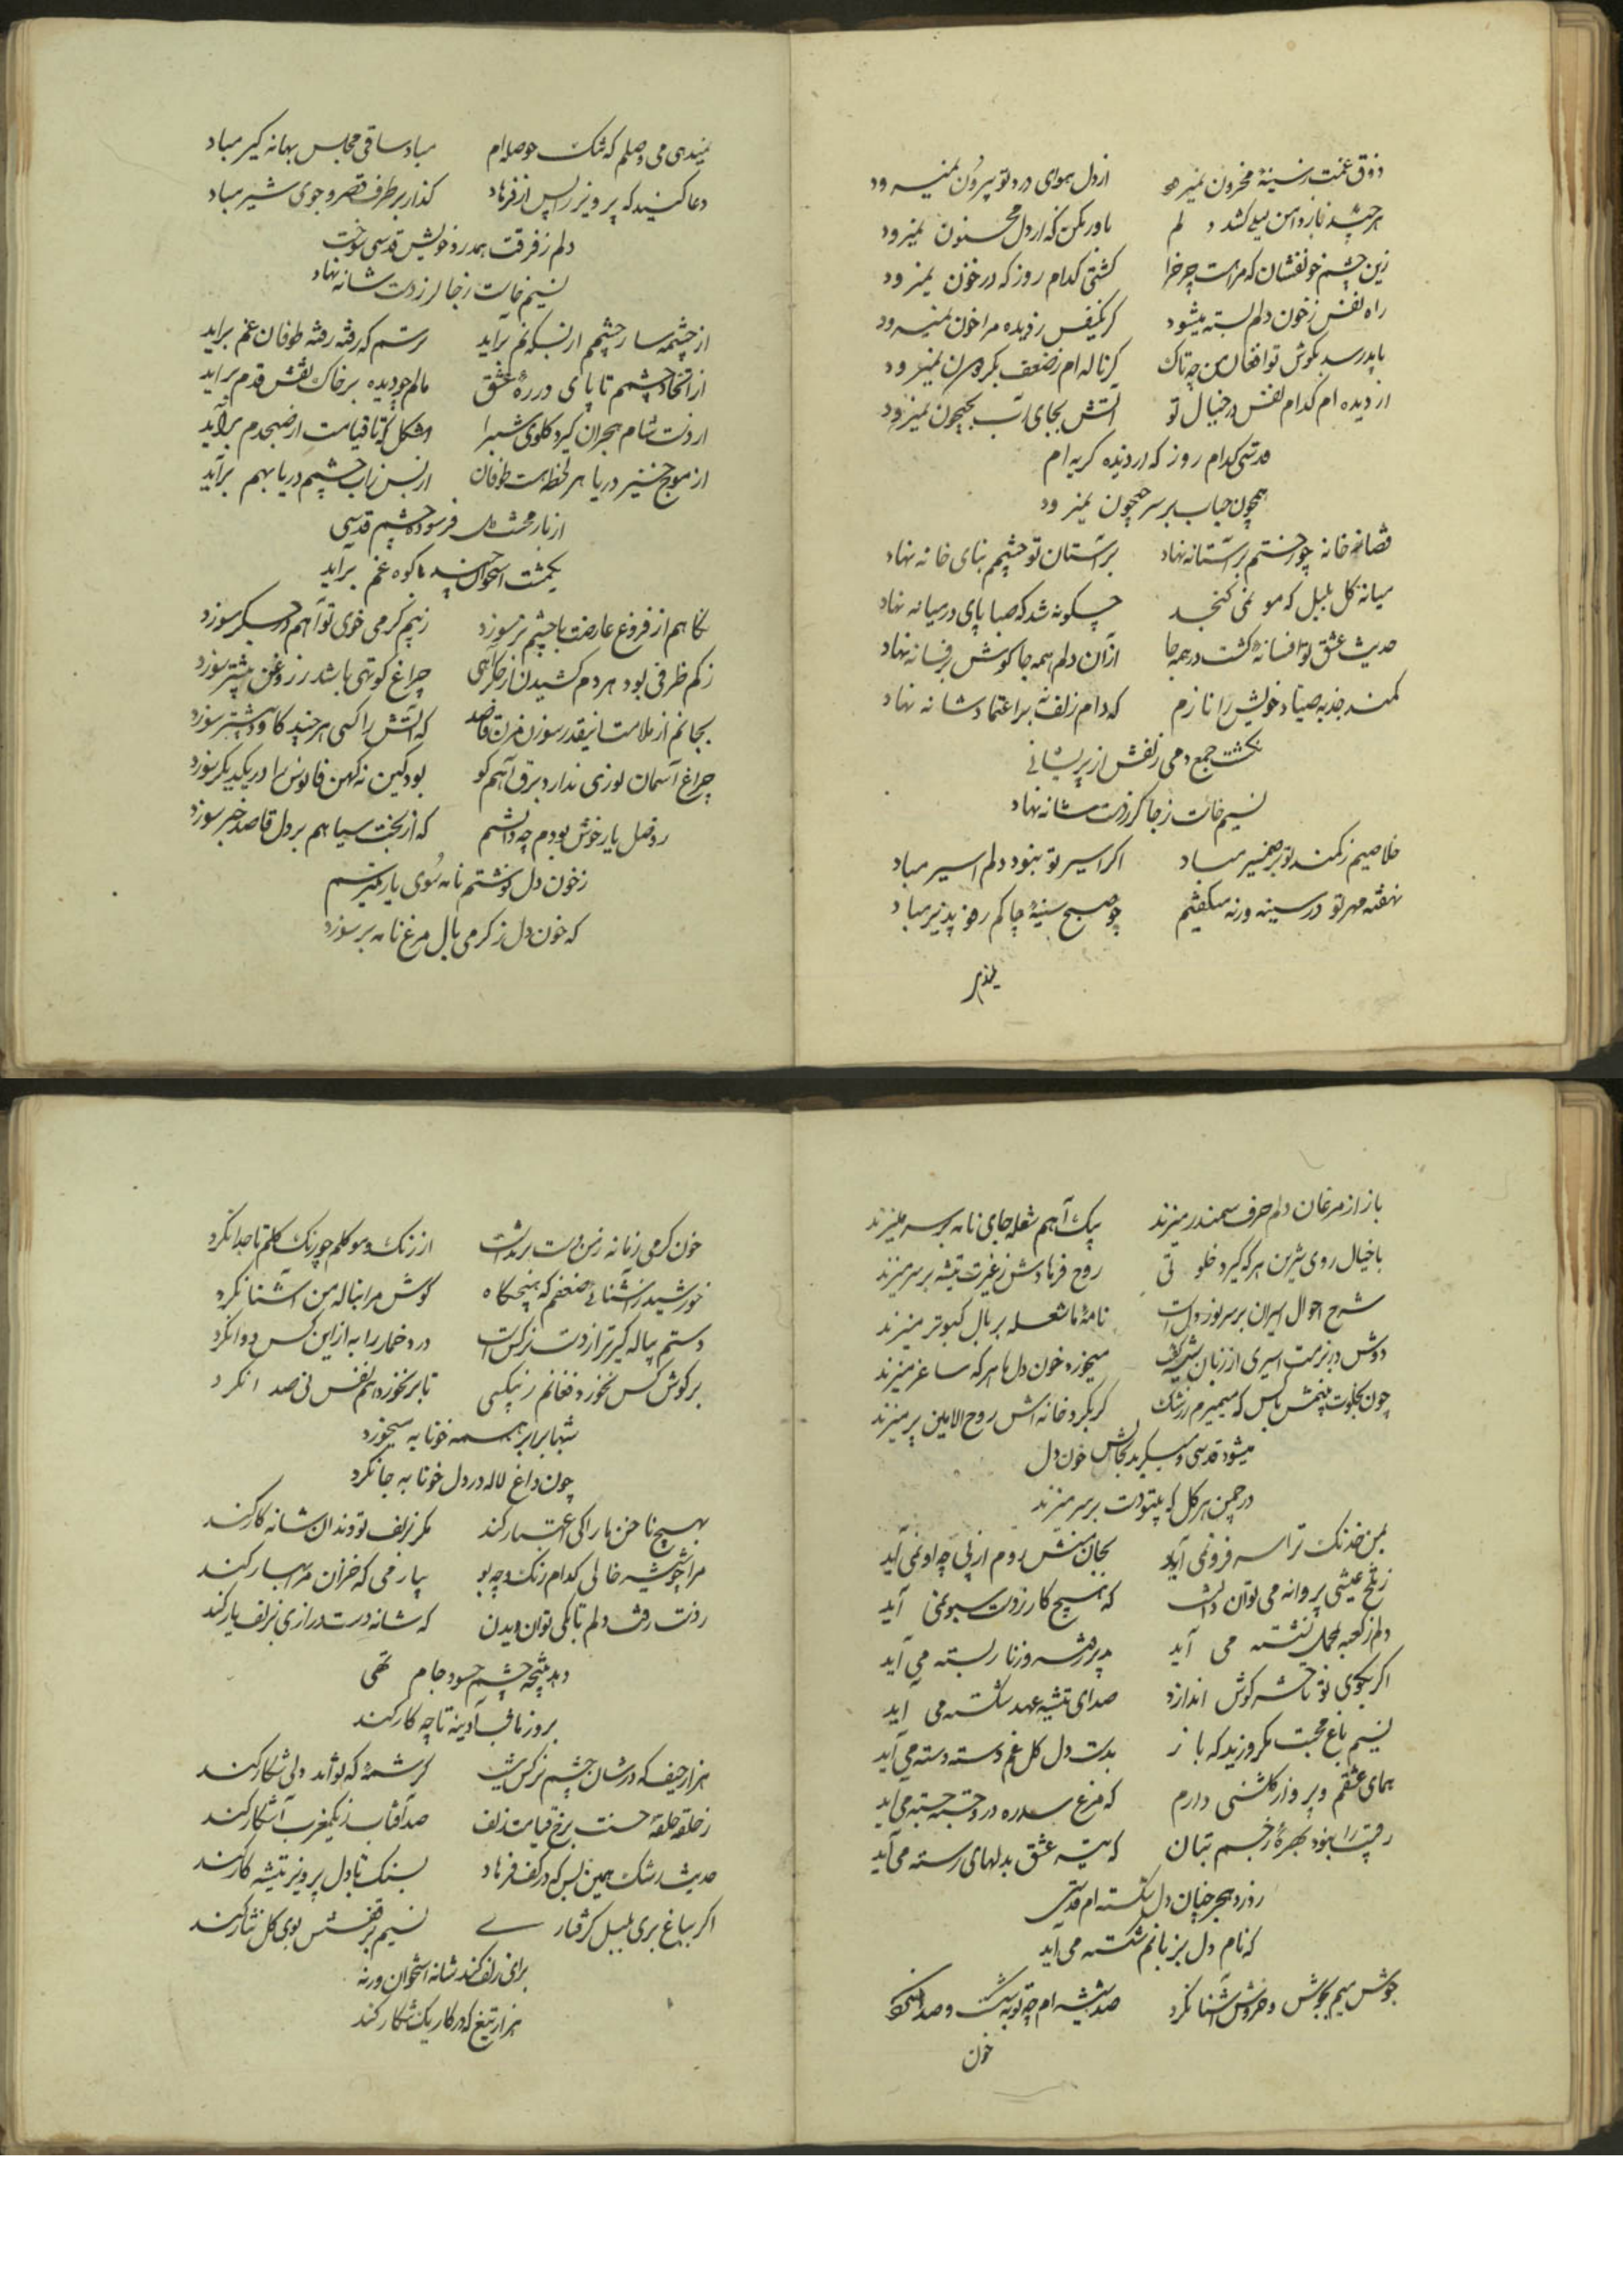 ذوق غمت ز سینهٔ محزون نمیرود از دل هوای درد تو بیرون نمیرود
هر چند ناز دامن لیلی کشد دلم باور مکن که از دل مجنون نمیرود
زین چشم خونفشان که مراست چرخ را کشتی کدام روز که در خون نمیرود
راه نفس ز خون دلم بسته میشود کر یکنفس ز دیده مرا خون نمیرود
کر ناله ام ز ضعف بکردون نمیرود
از دیده ام کدام نفس در خیال تو آتش بجای آب بجیحون نمیرود
قدسی کدام روز که از دیده کریه ام
همچون حباب بر سر جیحون نمیرود
قضا نه خانه چو رختم بر آستانه نهاد بر آستان تو چشمم بنای خانه نهاد
میانه کل و بلبل که مو نمی کنجد چکونه شد که صبا پای در میانه نهاد
حدیث عشق تو افسانه کشت در همه جا از آن دلم همه جا کوش بر فسانه نهاد
کمند جذبه صیاد خویش را نازم که دام زلف نه بر اعتماد شانه نهاد
نکشت جمع دمی زلفش از پریشانی
نسیم خاست ز جا کر ز دست شانه نهاد
خلاصیم ز کمند تو بر ضمیر مباد اکر اسیر تو نبود دلم اسیر مباد
نهفته مهر تو در سینه ورنه میکفتم چو صبح سینهٔ چاکم رفو پذیر مباد
نمیدهی می وصلم که تنک حوصله ام مباد ساقی مجلس بهانه کیر مباد
دعا کنید که پرویز را پس از فرهاد کذار بر طرف قصر و جوی شیر مباد
دلم ز فرقت همدرد خویش قدسی سوخت
نسیم خاست ز جا کر ز دست شانه نهاد
از چشمه سار چشمم از بسکه نم برآید ترسم که رفته رفته طوفان غم برآید
از اتحاد چشمم تا پای در ره عشق مالم چو دیده بر خاک نقش قدم برآید
از دست شام هجران کیرد کلوی شب را مشکل که تا قیامت از صبح دم برآید
از موج خیز دریا هر لحظه هست طوفان از بس ز آب چشمم دریا بهم برآید
از بار محنت دل فرسوده جسم قدسی
یکمشت استخوان چند با کوه غم برآید
نکاهم از فروغ عارضت با چشم تر سوزد ز بیم کرمی خوی تو آهم در جکر سوزد
ز کم ظرفی بود هر دم کشیدن از جکر آهی چراغ کوتهی باشد ز روغن بیشتر سوزد
بجانم از ملامت اینقدر سوزن مزن قاصد که آتش را کسی هر چند کاود بیشتر سوزد
چراغ آسمان نوری ندارد برق آهم کو بود کین نه کهن فانوس را در یکدیکر سوزد
ز وصل یار خوش بودم چه دانستم که از بخت سیاهم بر دل قاصد خبر سوزد
ز خون دل نوشتم نامه سوی یار و میترسم
که خون دل ز کرمی بال مرغ نامه بر سوزد
باز از مرغان دلم حرف سمندر میزند پیک آهم شعله جای نامه بر سر میزند
با خیال روی شیرین هر که کیرد خلوتی روح فرهادش ز غیرت تیشه بر سر میزند
شرح احوال اسیران بر سر سوز دلست نامهٔ ما شعله بر بال کبوتر میزند
دوش در بزمت اسیری از زبان شیشه کفت میخورد خون دل ما هر که ساغر میزند
چون بخلوت بینمش با کس که میمیرم ز رشک کر بکرد خانه اش روح الامین پر میزند
میشود قدسی و میکرید بحالش خون دل
در چمن هر کل که بیتو دست بر سر میزند
بمن خدنک ترا سر فرو نمی آید بجان منتش روم از پی چو او نمی آید
که هیچ کار ز دست سبو نمی آید
دلم ز کعبه بمحمل نشسته می آید بدیر رفته و زنار بسته می آید
اکر بکوی تو تا حشر کوش اندازد صدای شیشهٔ عهد شکسته می آید
نسیم باغ محبت مکر وزید که باز بدست دل کل غم دسته دسته می آید
همای عشقم و پرواز کلشنی دارم که مرغ سدره در او جسته جسته می آید
رقیب را نبود بهره ز خم بتان که تیر عشق بدلهای رسته می آید
ز درد هجر چنان دل شکسته ام قدسی
که نام دل بزبانم شکسته می آید
جوش میم بجوش و خروش آشنا نکرد صد شیشه ام چو توبه شکست و صدا نکرد
خون کرمی زمانه ز من دست برنداشت از رنک و بو کلم چو رنک کلم تا جدا نکرد
خورشید ز آشنائی ضعفم که هیچکاه کوش مرا بناله من آشنا نکرد
دستم پیاله کیرتر از دست نرکس است درد خمار را به ازین کس دوا نکرد
بر کوش کس نخورد فغانم ز بیکسی تا برنخورد هم نفس نی صدا نکرد
شبها برابر همه خونابه میخورد
چون داغ لاله در دل خونابه جا نکرد
بهیچ ناخن ما را کی اعتبار کند مکر بزلف تو دندان شانه کار کند
مرا چو شیشه خالی کدام رنک و چه بو بیار می که خزان مرا بهار کند
ز دست رفت دلم تا بکی توان دیدن که شانه دست درازی بزلف یار کند
دهد نتیجه چشم حسود جام تهی
بروز ما شب آدینه تا چه کار کند
هزار حیف که در شان چشم نرکس نیست کرشمهٔ که تواند دلی شکار کند
ز حلقه حلقهٔ حسنت برخ قیامت زلف صد آفتاب ز یک مغرب آشکار کند
حدیث رشک همین بس که در کف فرهاد بسنک تا دل پرویز تیشه کار کند
اکر بباغ بری بلبل کرفتاری نسیم بر قفسش بوی کل نثار کند
برای زلف کند شانه استخوان ورنه
هزار تیغ که در کار یک شکار کند